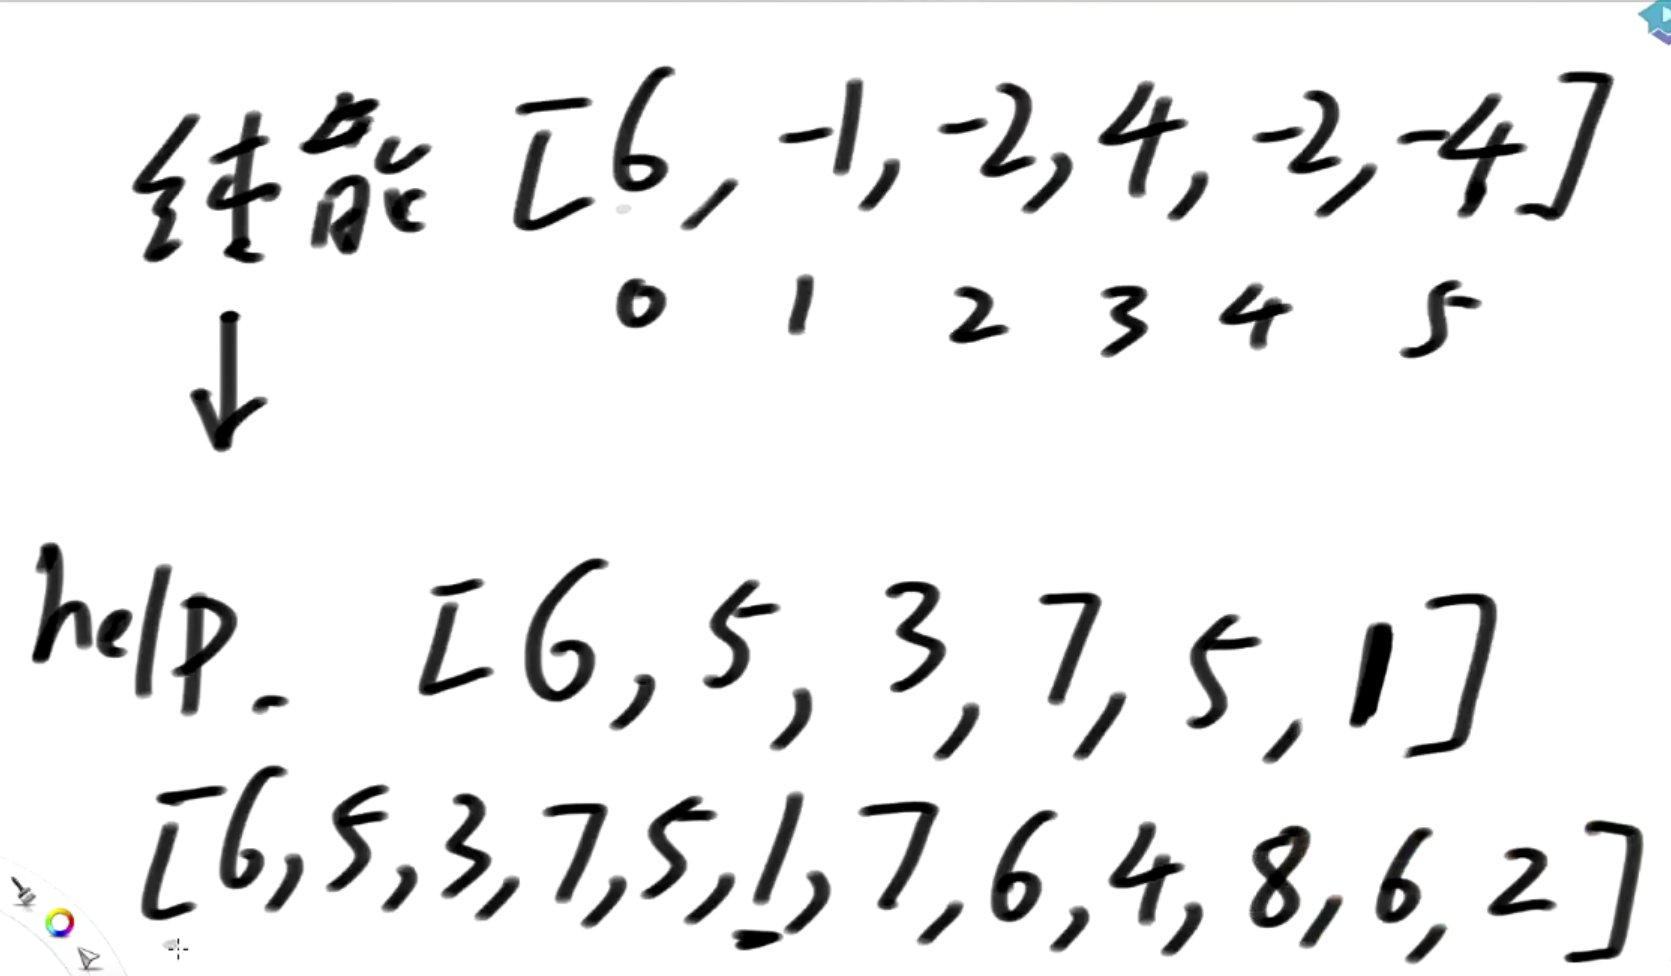 纯能 [6, -1, -2, 4, -2, -4]
0 1 2 3 4 5
↓
help. [6, 5, 3, 7, 5, 1]
[6, 5, 3, 7, 5, 1, 7, 6, 4, 8, 6, 2]